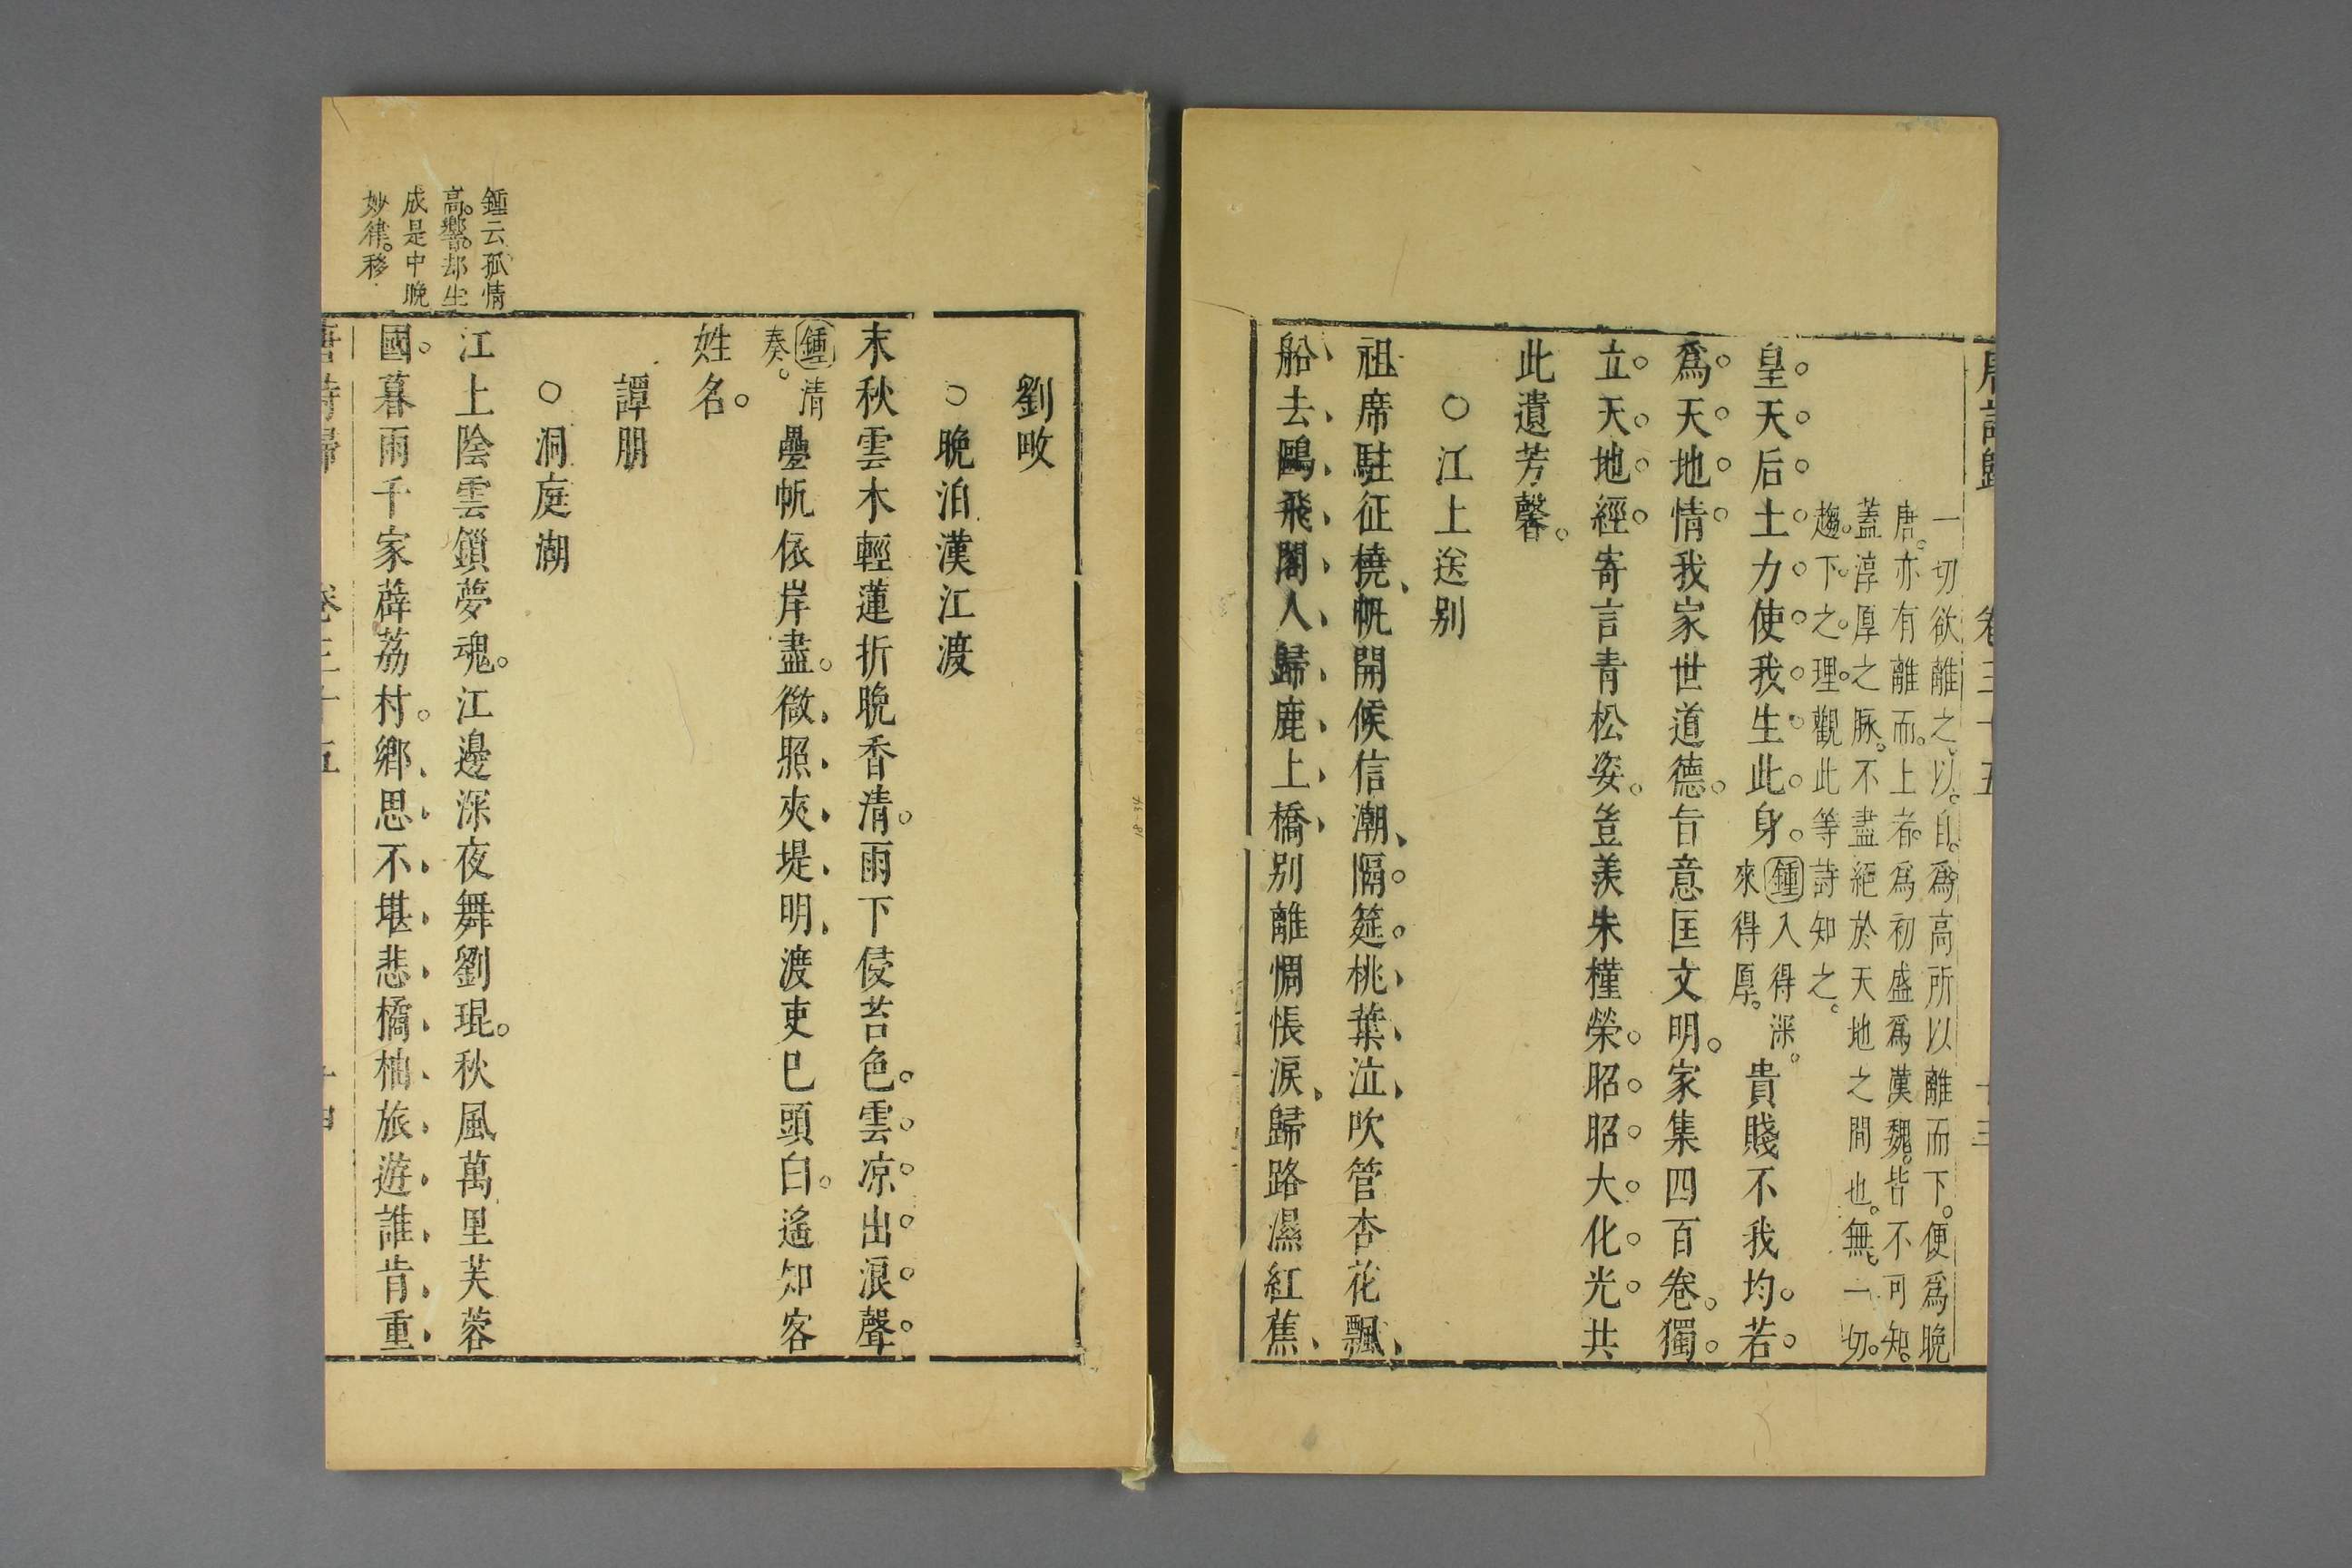 唐詩歸 卷三十五 十三
一切欲離之以自爲高所以離而下便爲晚
唐亦有離而上者爲初盛爲漢魏皆不可知
蓋淳厚之脉不盡絕於天地之間也無一切
趨下之理觀此等詩知之
皇天后土力使我生此身鍾入得深來得厚貴賤不我均若
爲天地情我家世道德旨意匡文明家集四百卷獨
立天地經寄言青松姿豈羨朱槿榮昭昭大化光共
此遺芳馨
○江上送别
祖席駐征橈帆開候信潮隔筵桃葉泣吹管杏花飄
船去鷗飛閣人歸鹿上橋别離惆悵淚歸路濕紅蕉
劉畋
○晚泊漢江渡
末秋雲木輕蓮折晚香清雨下侵苔色雲凉出浪聲
鍾清奏疊帆依岸盡微照夾堤明渡吏已頭白遙知客
姓名
譚朋
○洞庭湖
江上陰雲鎖夢魂江邊深夜舞劉琨秋風萬里芙蓉
國暮雨千家薜荔村鄉思不堪悲橘柚旅遊誰肯重
鍾云孤情
高響却生
成是中晚
妙律移
唐詩歸 卷三十五 十四